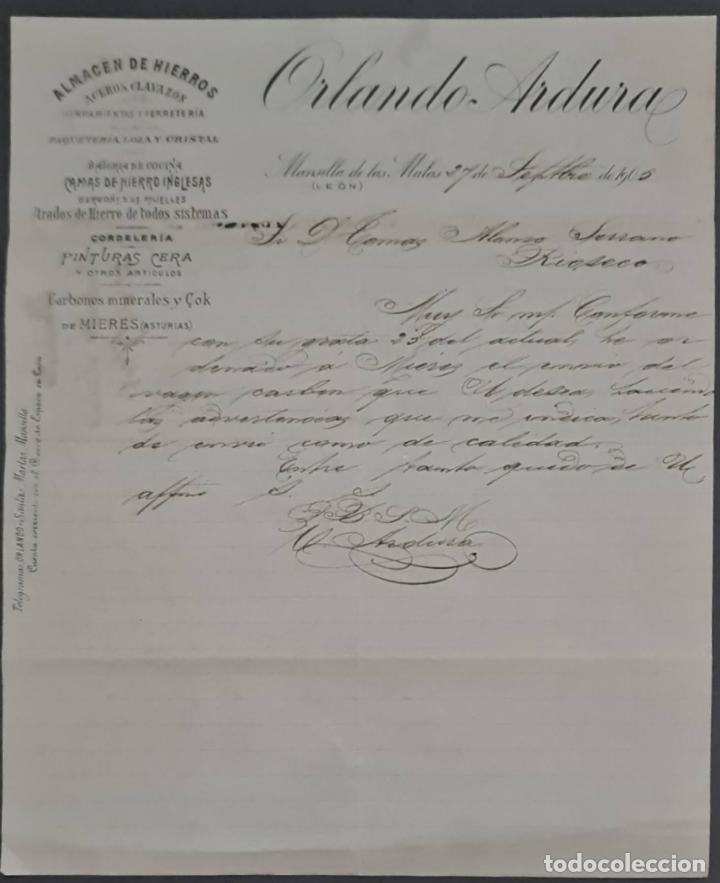 ALMACEN DE HIERROS
ACEROS CLAVAZON
HERRAMIENTAS Y FERRETERÍA
PAQUETERIA, LOZA Y CRISTAL
BATERIA DE COCINA
CAMAS DE HIERRO INGLESAS
MUELLES
Arados de Hierro de todos sistemas
CORDELERÍA
PINTURAS CERA
Y OTROS ARTICULOS
Carbones minerales y Çok
DE MIERES (ASTURIAS)
Telegramas: ORLANDO-Santas Martas Mansilla
Cuenta corriente con el Banco de España en León
Orlando Ardura
Mansilla de las Mulas 27 de Septbre de 1905
(LEÓN)
Sr D. Tomas Alonso Serrano
Rioseco
Muy Sr mf. Conforme
con su grata 23 del actual, he or
denado á Mieres el envio del
vagon carbon que V desea, haciendo
las advertencias que me indica, tanto
de envio como de calidad.
Entre tanto quedo de V
affmo S. S.
Q B S M
O. Ardura
todocoleccion.net